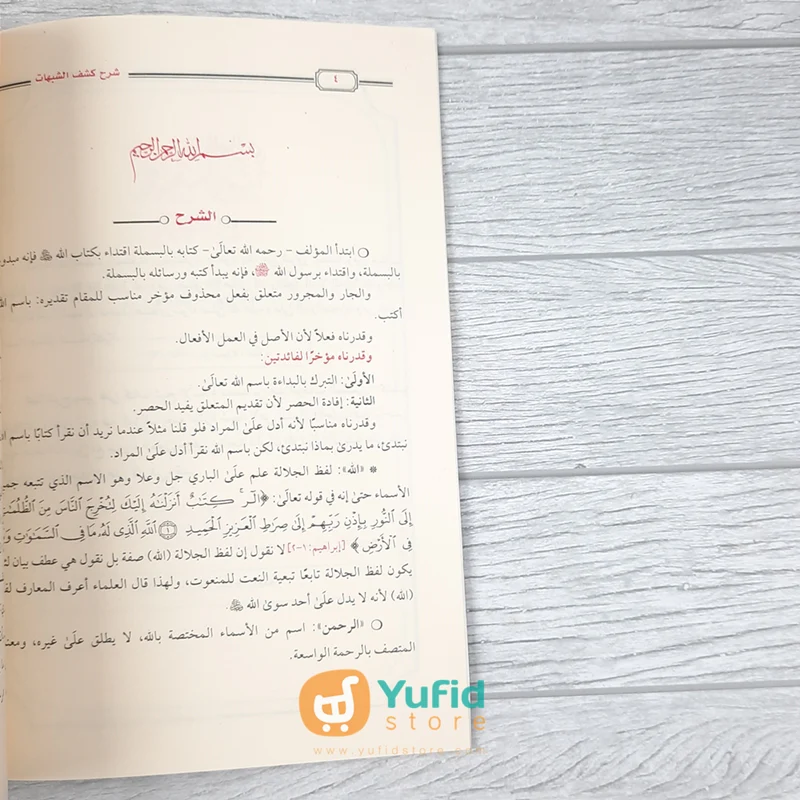 شرح كشف الشبهات
٤
بسم الله الرحمن الرحيم
الشرح
ابتدأ المؤلف - رحمه الله تعالىٰ- كتابه بالبسملة اقتداء بكتاب الله ﷻ فإنه مبدوء
بالبسملة، واقتداء برسول الله ﷺ، فإنه يبدأ كتبه ورسائله بالبسملة.
والجار والمجرور متعلق بفعل محذوف مؤخر مناسب للمقام تقديره: باسم الله
أكتب.
وقدرناه فعلاً لأن الأصل في العمل الأفعال.
وقدرناه مؤخرًا لفائدتين:
الأولىٰ: التبرك بالبداءة باسم الله تعالىٰ.
الثانية: إفادة الحصر لأن تقديم المتعلق يفيد الحصر.
وقدرناه مناسبًا لأنه أدل علىٰ المراد فلو قلنا مثلاً عندما نريد أن نقرأ كتابًا باسم
نبتدئ، ما يدرىٰ بماذا نبتدئ، لكن باسم الله نقرأ أدل علىٰ المراد.
* «الله»: لفظ الجلالة علم علىٰ الباري جل وعلا وهو الاسم الذي تتبعه
الأسماء حتىٰ إنه في قوله تعالىٰ: ﴿الٓرۚ كِتَٰبٌ أَنزَلْنَٰهُ إِلَيْكَ لِتُخْرِجَ ٱلنَّاسَ مِنَ ٱلظُّلُمَٰتِ
إِلَى ٱلنُّورِ بِإِذْنِ رَبِّهِمْ إِلَىٰ صِرَٰطِ ٱلْعَزِيزِ ٱلْحَمِيدِ ١ ٱللَّهِ ٱلَّذِى لَهُۥ مَا فِى ٱلسَّمَٰوَٰتِ
فِى ٱلْأَرْضِ﴾ [إبراهيم: ١-٢] لا نقول إن لفظ الجلالة (الله) صفة بل نقول هي عطف بيان
يكون لفظ الجلالة تابعًا تبعية النعت للمنعوت، ولهذا قال العلماء أعرف المعارف
(الله) لأنه لا يدل علىٰ أحد سوىٰ الله ﷻ.
«الرحمن»: اسم من الأسماء المختصة بالله، لا يطلق علىٰ غيره،
المتصف بالرحمة الواسعة.
Yufid
store
www.yufidstore.com